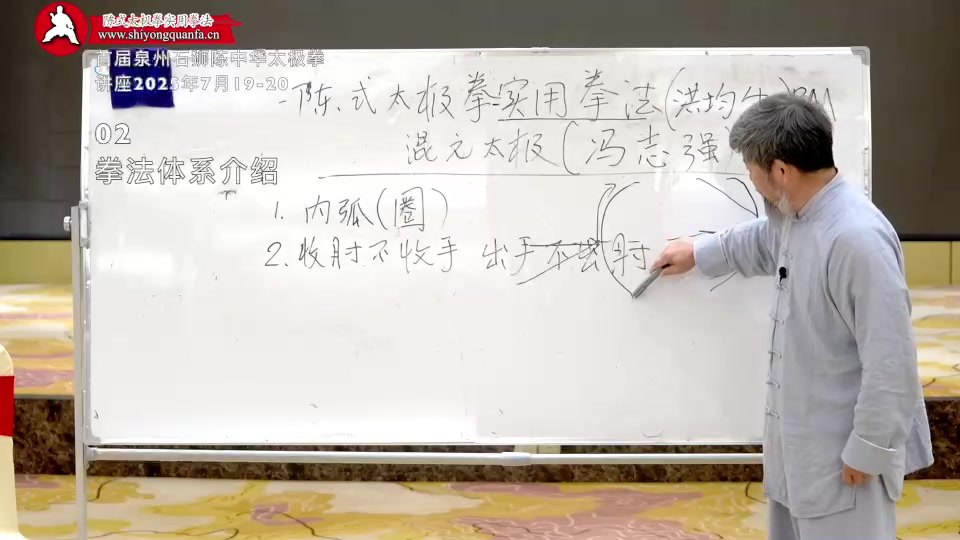 陈式太极拳实用拳法
www.shiyongquanfa.cn
首届泉州石狮陈中华太极拳
讲座2025年7月19-20
02
拳法体系介绍
陈式太极拳实用拳法(洪均生)
混元太极(冯志强)
1. 内弧(圈)
2. 收肘不收手 出手不出肘